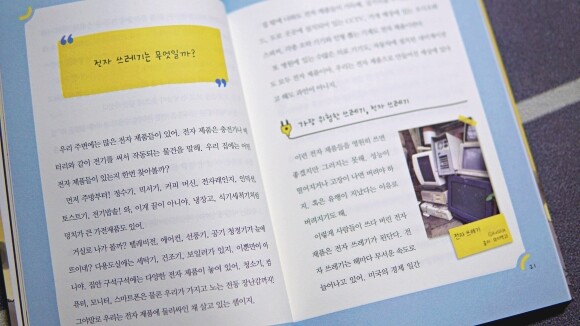 전자 쓰레기는 무엇일까?
우리 주변에는 많은 전자 제품들이 있어. 전자 제품은 충전기나 배
터리와 같이 전기를 써서 작동되는 물건을 말해. 우리 집에는 어떤
전자 제품들이 있는지 한번 찾아볼까?
먼저 주방부터! 정수기, 믹서기, 커피 머신, 전자레인지, 인덕션,
토스트기, 전기밥솥! 와, 이게 끝이 아니야. 냉장고, 식기세척기처럼
덩치가 큰 가전제품도 있어.
거실로 나가 볼까? 텔레비전, 에어컨, 선풍기, 공기 청정기가 눈에
뜨이네? 다용도실에는 세탁기, 건조기, 보일러가 있지. 이뿐만이 아
니야. 집안 구석구석에는 다양한 전자 제품이 놓여 있어. 청소기, 컴
퓨터, 모니터, 스마트폰은 물론 우리가 가지고 노는 전동 장난감까지!
그야말로 우리는 전자 제품에 둘러싸인 채 살고 있는 셈이지.
집 밖에
도 모두 전자 제품이야. 우리는 전자 제품으로 만들어진 세상에 산다
고 해도 과언이 아니지.
가장 위험한 쓰레기, 전자 쓰레기
이런 전자 제품들을 영원히 쓰면
좋겠지만 그러지는 못해. 성능이
떨어지거나 고장이 나면 버려야 하
지. 혹은 유행이 지났다는 이유로
버려지기도 해.
이렇게 사람들이 쓰다 버린 전자
제품은 전자 쓰레기가 된단다. 전
자 쓰레기는 해마다 무서운 속도로
늘어나고 있어. 미국의 경제 일간
전자 쓰레기
21